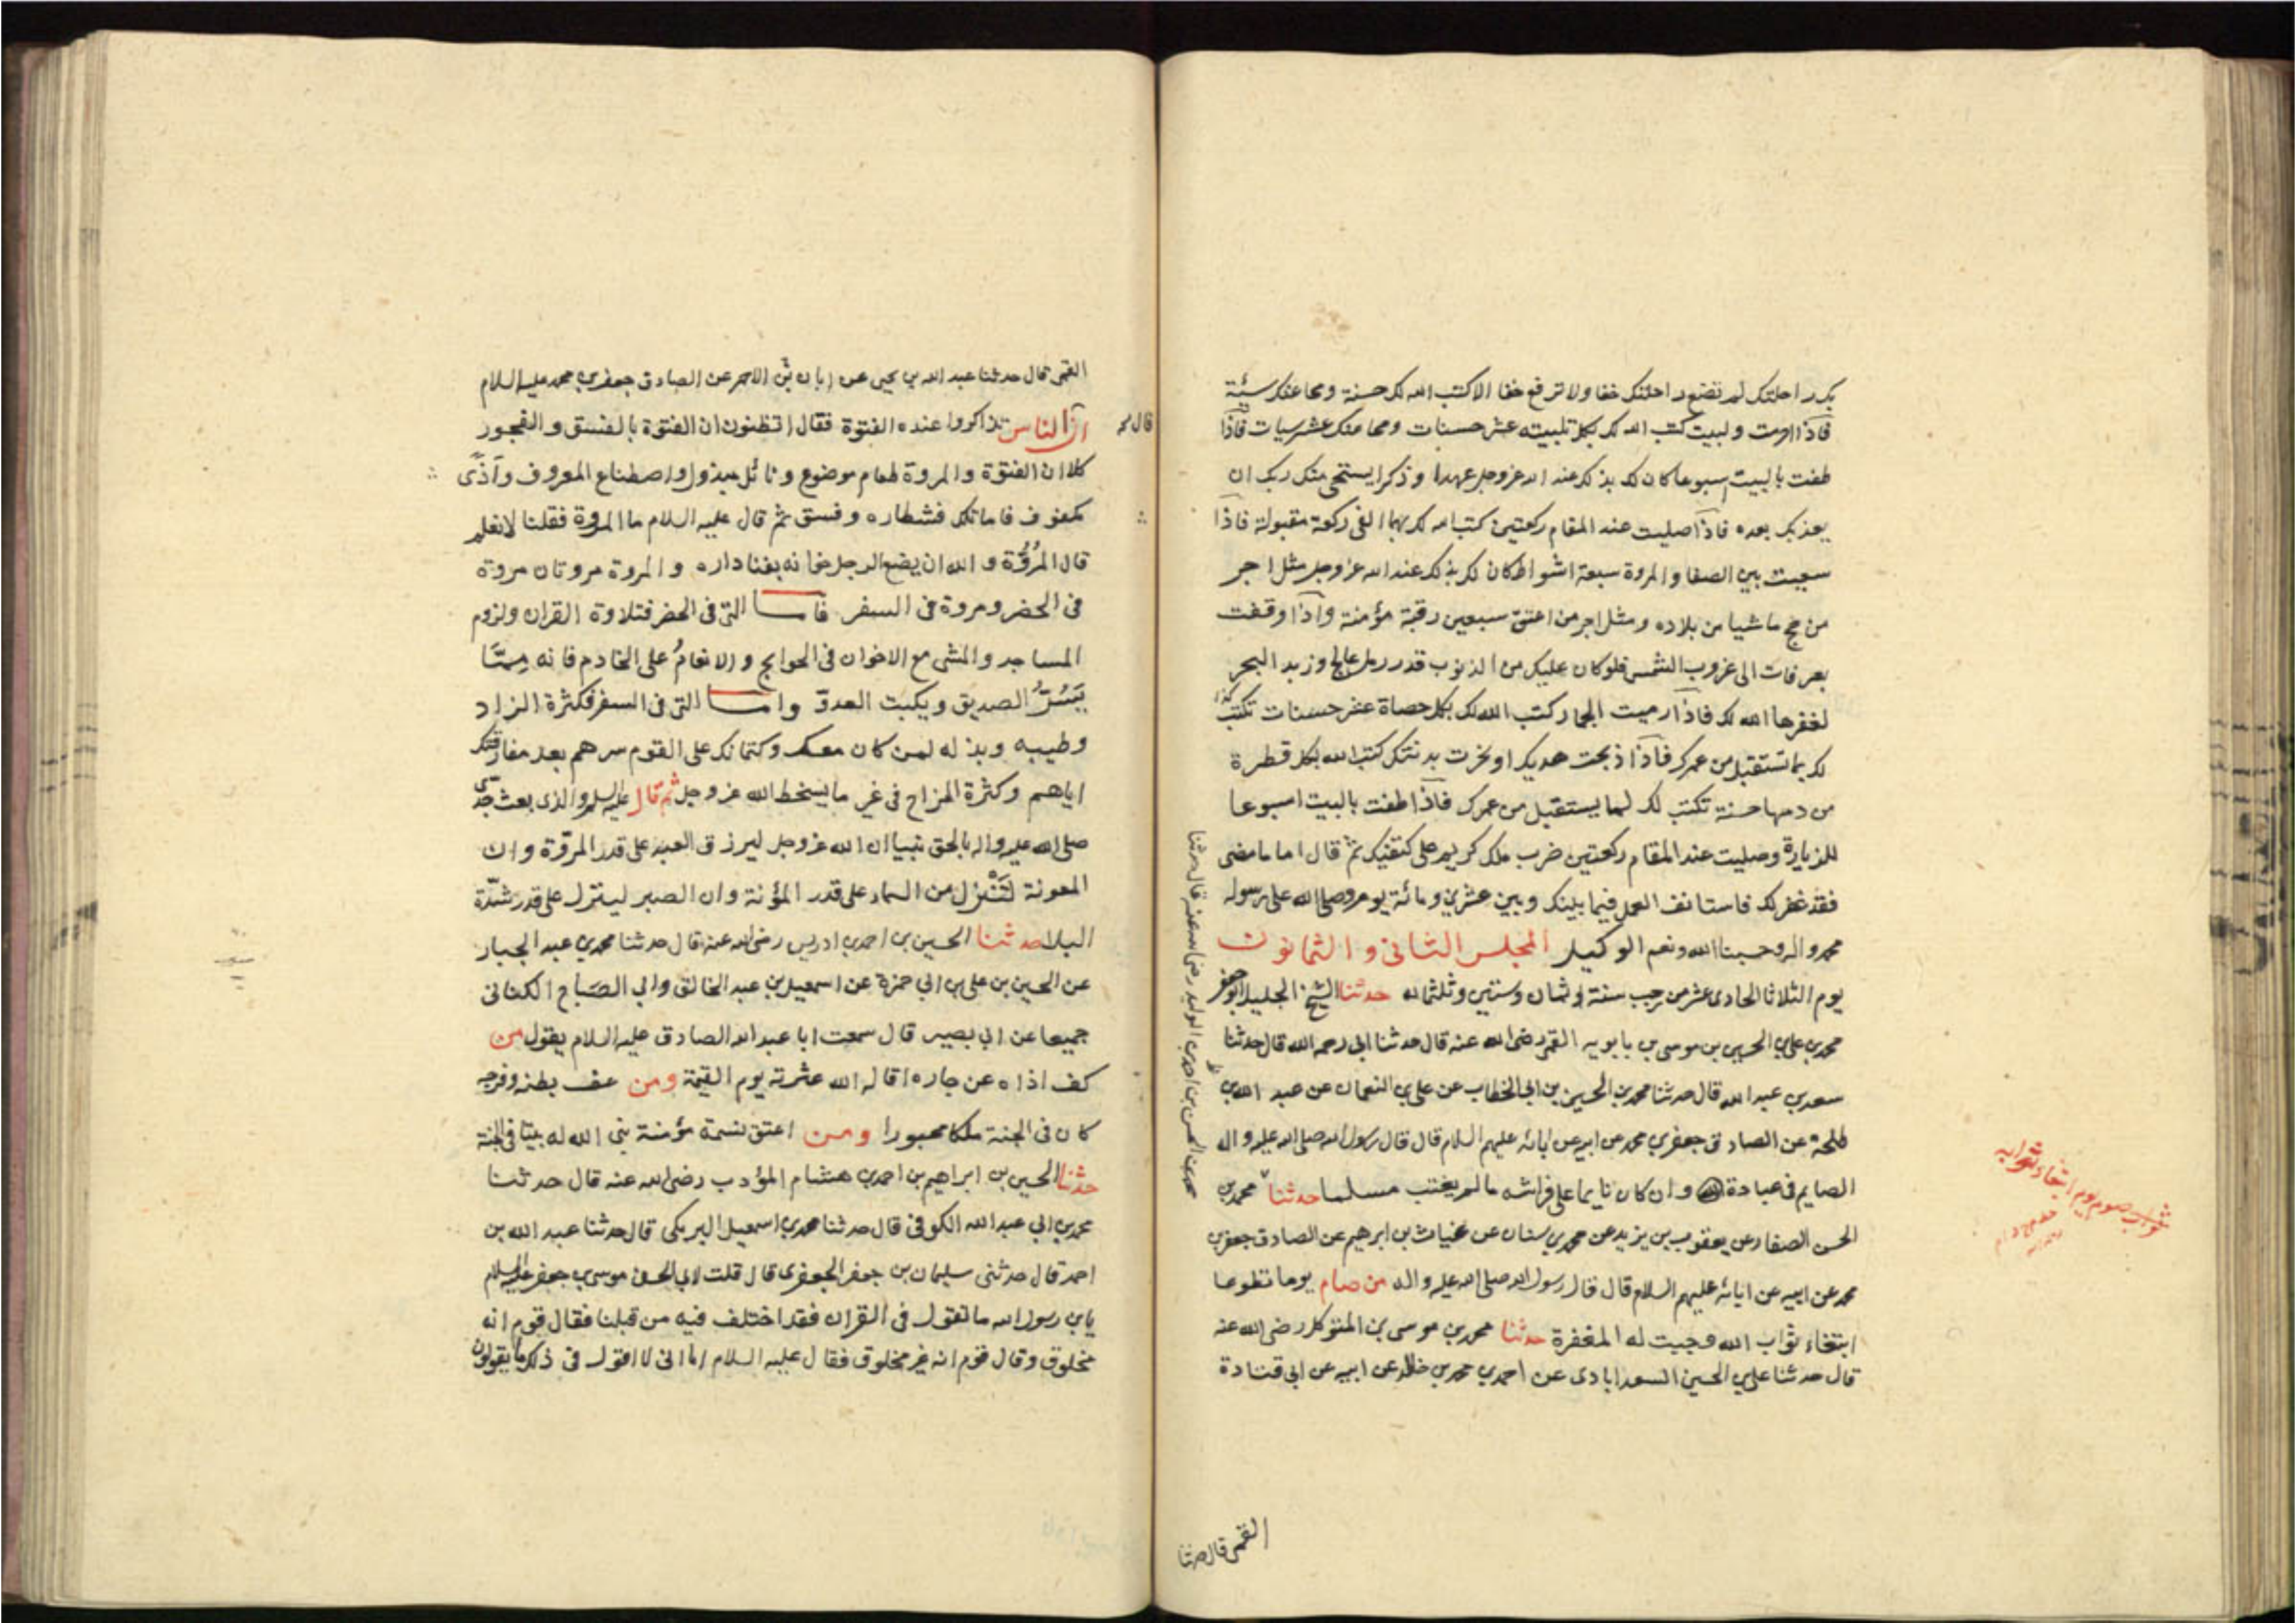 بك راحلتك لم تضع راحلتك خفا ولا ترفع خفا الا كتب الله لك حسنة ومحا عنك سيئة
فاذا احرمت ولبيت كتب الله لك بكل تلبيته عشر حسنات ومحا عنك عشر سيات فاذا
طفت بالبيت اسبوعا كان لك بذلك عند الله عز وجل عهدا وذكرا يستحيى منك ربك ان
يعذبك بعده فاذا صليت عند المقام ركعتين كتب الله لك بهما الفى ركعة مقبولة فاذا
سعيت بين الصفا والمروة سبعة اشواط كان لك بذلك عند الله عز وجل مثل اجر
من حج ماشيا من بلاده ومثل اجر من اعتق سبعين رقبة مؤمنة واذا وقفت
بعرفات الى غروب الشمس فلو كان عليك من الذنوب قدر رمل عالج وزبد البحر
لغفرها الله لك فاذا رميت الجمار كتب الله لك بكل حصاة عشر حسنات تكتب كذا
لك بما تستقبل من عمرك فاذا ذبحت هديك او نحرت بدنتك كتب الله بكل قطرة
من دمها حسنة تكتب لك لما يستقبل من عمرك فاذا طفت بالبيت اسبوعا
للزيارة وصليت عند المقام ركعتين ضرب ملك كريم على كتفيك ثم قال اما ما مضى
فقد غفر لك فاستانف العمل فيما بينك وبين عشرين ومائة يوم وصلى الله على رسوله
محمد واله وحسبنا الله ونعم الوكيل المجلس الثانى والثمانون
يوم الثلاثا الحادى عشر من رجب سنة ثمان وستين وثلثمائه حدثنا الشيخ الجليل ابو جعفر
محمد بن علي بن الحسين بن موسى بن بابويه القمى رضى الله عنه قال حدثنا ابى رحمه الله قال حدثنا
سعد بن عبد الله قال حدثنا محمد بن الحسين بن ابى الخطاب عن علي بن النعمان عن عبد الله بن
طلحة عن الصادق جعفر بن محمد عن ابيه عن ابائه عليهم السلام قال قال رسول الله صلى الله عليه واله
الصايم فى عبادة الله وان كان نايما على فراشه ما لم يغتب مسلما حدثنا محمد بن
الحسن الصفار عن يعقوب بن يزيد عن محمد بن سنان عن غياث بن ابرهيم عن الصادق جعفر بن
محمد عن ابيه عن ابائه عليهم السلام قال قال رسول الله صلى الله عليه واله من صام يوما تطوعا
ابتغاء ثواب الله وجبت له المغفرة حدثنا محمد بن موسى بن المتوكل رضى الله عنه
قال حدثنا علي بن الحسين السعدابادى عن احمد بن محمد بن خالد عن ابيه عن ابى قتادة
محمد بن الحسن بن احمد بن الوليد رضى الله عنه قال حدثنا
ثواب صوم يوم ابتغاء ثواب الله
القمى قال حدثنا
القمى قال حدثنا عبد الله بن يحيى عن ابان بن الاحمر عن الصادق جعفر بن محمد عليه السلام
ان الناس تذاكروا عنده الفتوة فقال اتظنون ان الفتوة بالفسق والفجور
كلا ان الفتوة والمروة طعام موضوع ونائل مبذول واصطناع المعروف واذى
مكفوف فاما تلك فشطاره وفسق ثم قال عليه السلام ما المروة فقلنا لا نعلم
قال المروة والله ان يضع الرجل خوانه بفنا داره والمروة مروتان مروة
فى الحضر ومروة فى السفر فاما التى فى الحضر فتلاوة القران ولزوم
المساجد والمشى مع الاخوان فى الحوايج والانعام على الخادم فانه مما
يسر الصديق ويكبت العدو واما التى فى السفر فكثرة الزاد
وطيبه وبذله لمن كان معك وكتمانك على القوم سرهم بعد مفارقتك
اياهم وكثرة المزاح فى غير ما يسخط الله عز وجل ثم قال عليه السلم والذى بعث جدى
صلى الله عليه واله بالحق نبيا ان الله عز وجل ليرزق العبد على قدر المروة وان
المعونة لتنزل من السماء على قدر المؤنة وان الصبر لينزل على قدر شدة
البلا حدثنا الحسين بن احمد بن ادريس رضى الله عنه قال حدثنا محمد بن عبد الجبار
عن الحسين بن على بن ابي حمزة عن اسمعيل بن عبد الخالق وابي الصباح الكنانى
جميعا عن ابي بصير قال سمعت ابا عبد الله الصادق عليه السلام يقول من
كف اذاه عن جاره اقاله الله عثرته يوم القيمة ومن عف بطنه وفرجه
كان فى الجنة ملكا محبورا ومن اعتق نسمة مؤمنة بنى الله له بيتا فى الجنة
حدثنا الحسين بن ابراهيم بن احمد بن هشام المؤدب رضى الله عنه قال حدثنا
محمد بن ابي عبد الله الكوفى قال حدثنا محمد بن اسمعيل البرمكى قال حدثنا عبد الله بن
احمد قال حدثنى سليمان بن جعفر الجعفرى قال قلت لابى الحسن موسى بن جعفر عليه السلام
يابن رسول الله ما تقول فى القران فقد اختلف فيه من قبلنا فقال قوم انه
مخلوق وقال قوم انه غير مخلوق فقال عليه السلام اما انى لا اقول فى ذلك ما يقولون